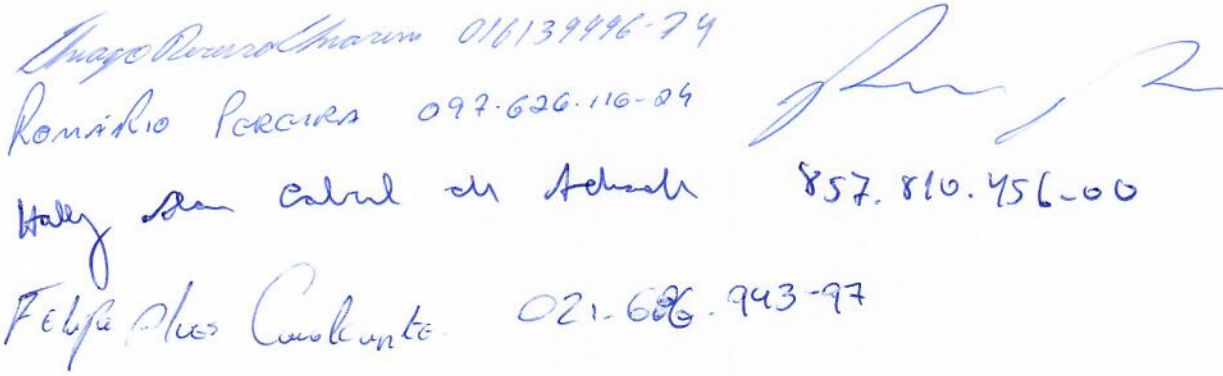 Thiago 016139496-74
Romário Pereira 097.626.116-24
Hally Cabral de 857.810.456-00
Felipe Alves Cavalcante 021.686.943-97